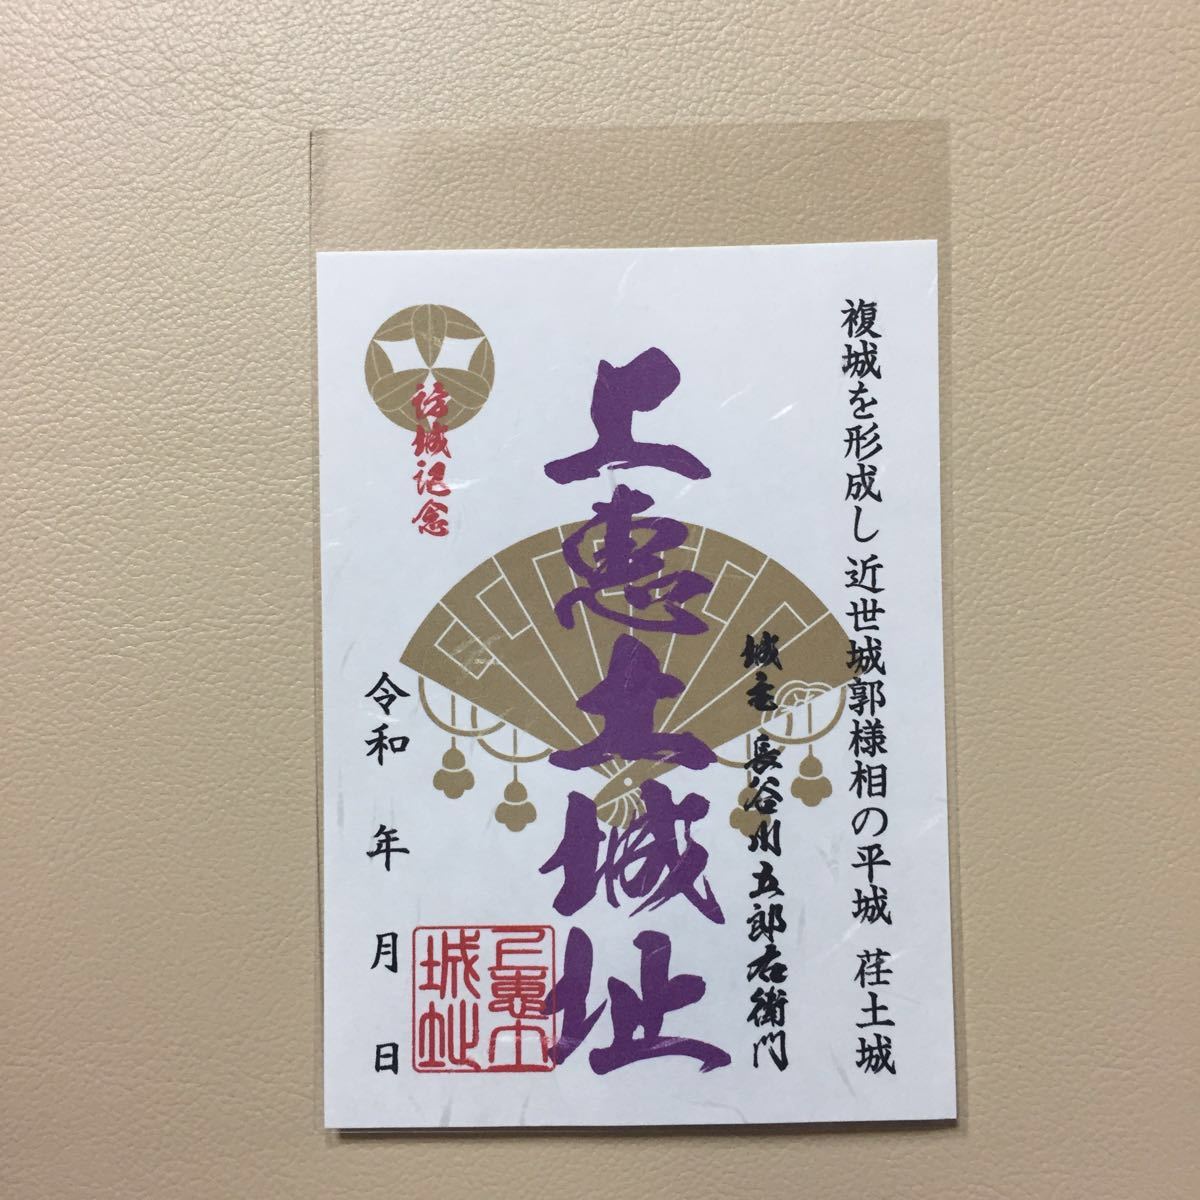 複城を形成し 近世城郭様相の平城 荏土城
城主 長谷川五郎右衛門
上恵土城址
訪城記念
令和 年 月 日
上恵土城址